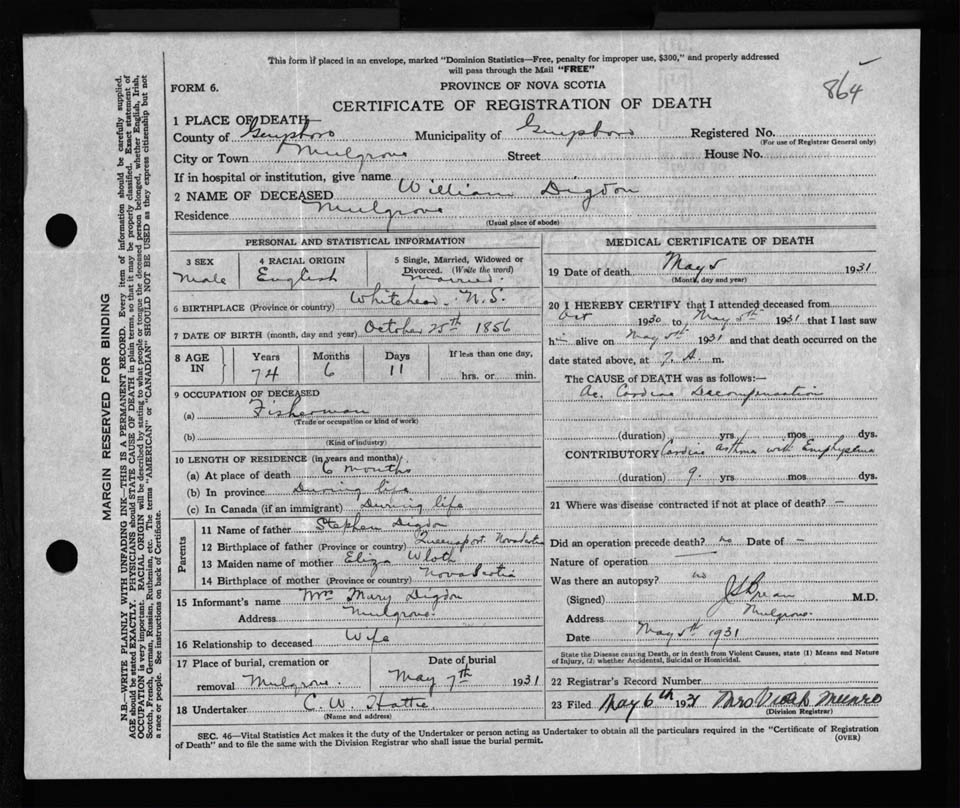 This form if placed in an envelope, marked "Dominion Statistics—Free, penalty for improper use, $300," and properly addressed
will pass through the Mail "FREE"
864
FORM 6.
PROVINCE OF NOVA SCOTIA
CERTIFICATE OF REGISTRATION OF DEATH
1 PLACE OF DEATH
County of Guysboro Municipality of Guysboro Registered No.
(For use of Registrar General only)
City or Town Mulgrave Street House No.
If in hospital or institution, give name
2 NAME OF DECEASED William Digdon
Residence Mulgrave
(Usual place of abode)
PERSONAL AND STATISTICAL INFORMATION
3 SEX 4 RACIAL ORIGIN 5 Single, Married, Widowed or
Divorced. (Write the word)
Male English Married.
6 BIRTHPLACE (Province or country) Whitehead. N.S.
7 DATE OF BIRTH (month, day and year) October 25th 1856
8 AGE IN Years Months Days If less than one day,
74 6 11 hrs. or min.
9 OCCUPATION OF DECEASED
(a) Fisherman
(Trade or occupation or kind of work)
(b)
(Kind of industry)
10 LENGTH OF RESIDENCE (in years and months)
(a) At place of death 6 months
(b) In province During life
(c) In Canada (if an immigrant) During life
Parents
11 Name of father Stephen Digdon
12 Birthplace of father (Province or country) Queensport. Nova Scotia
13 Maiden name of mother Eliza
14 Birthplace of mother (Province or country) Nova Scotia
15 Informant's name Mrs Mary Digdon
Address Mulgrave.
16 Relationship to deceased Wife
17 Place of burial, cremation or Date of burial
removal Mulgrave. May 7th 1931
18 Undertaker C. W. Hattie
(Name and address)
MEDICAL CERTIFICATE OF DEATH
19 Date of death May 5 1931
(Month, day and year)
20 I HEREBY CERTIFY that I attended deceased from
Oct 1930 to May 5th 1931 that I last saw
h alive on May 5th 1931 and that death occurred on the
date stated above, at 7. A. m.
The CAUSE of DEATH was as follows:—
Ac. Cardiac Decompensation
(duration) yrs. mos. dys.
CONTRIBUTORY Cardiac asthma with Emphysema
(duration) 9. yrs. mos. dys.
21 Where was disease contracted if not at place of death? —
Did an operation precede death? no Date of —
Nature of operation
Was there an autopsy? no
(Signed) M.D.
Address Mulgrave.
Date May 5th 1931
State the Disease causing Death, or in death from Violent Causes, state (1) Means and Nature
of Injury, (2) whether Accidental, Suicidal or Homicidal.
22 Registrar's Record Number
23 Filed May 6th 1931 Mrs Munro
(Division Registrar)
SEC. 46—Vital Statistics Act makes it the duty of the Undertaker or person acting as Undertaker to obtain all the particulars required in the "Certificate of Registration
of Death" and to file the same with the Division Registrar who shall issue the burial permit.
(OVER)
MARGIN RESERVED FOR BINDING
N.B.—WRITE PLAINLY WITH UNFADING INK—THIS IS A PERMANENT RECORD. Every item of information should be carefully supplied.
AGE should be stated EXACTLY. PHYSICIANS should STATE CAUSE OF DEATH in plain terms, so that it may be properly classified. Exact statement of
OCCUPATION is very important. RACIAL ORIGIN will be described by stating to what people or tongue the deceased person belonged, whether English, Irish,
Scotch, French, German, Russian, Ruthenian, etc. The terms "AMERICAN" or "CANADIAN" SHOULD NOT BE USED as they express citizenship but not
a race or people. See instructions on back of Certificate.